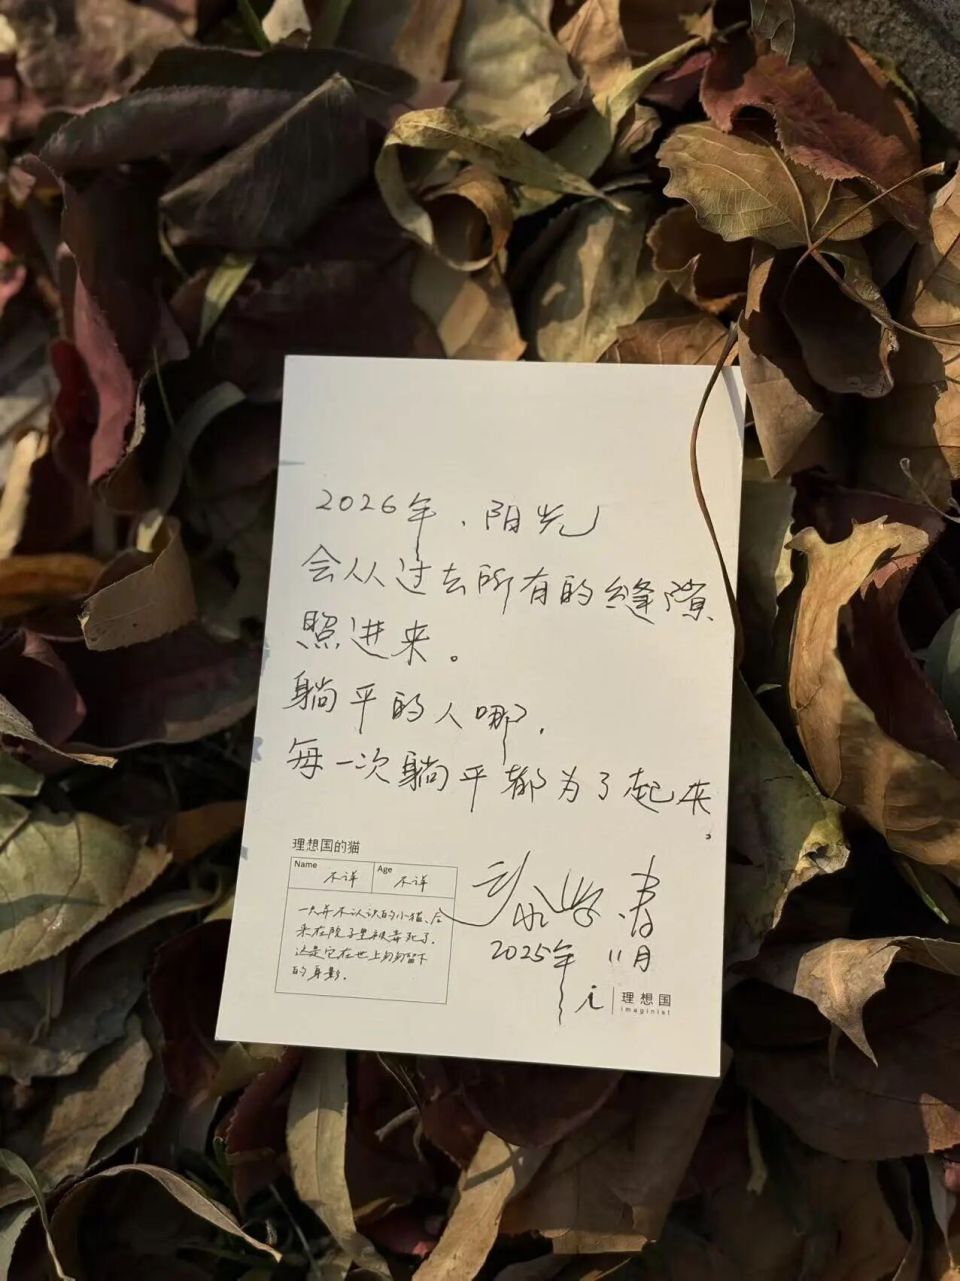 2026年、阳光
会从过去所有的缝隙
照进来。
躺平的人哪,
每一次躺平都为了起来
。
理想国的猫
Name 不详 Age 不详
一只并不认识的小猫、后
来在院子里被毒死了.
这是它在世上匆匆留下
的身影.
2025年11月
i 理想国
imaginist